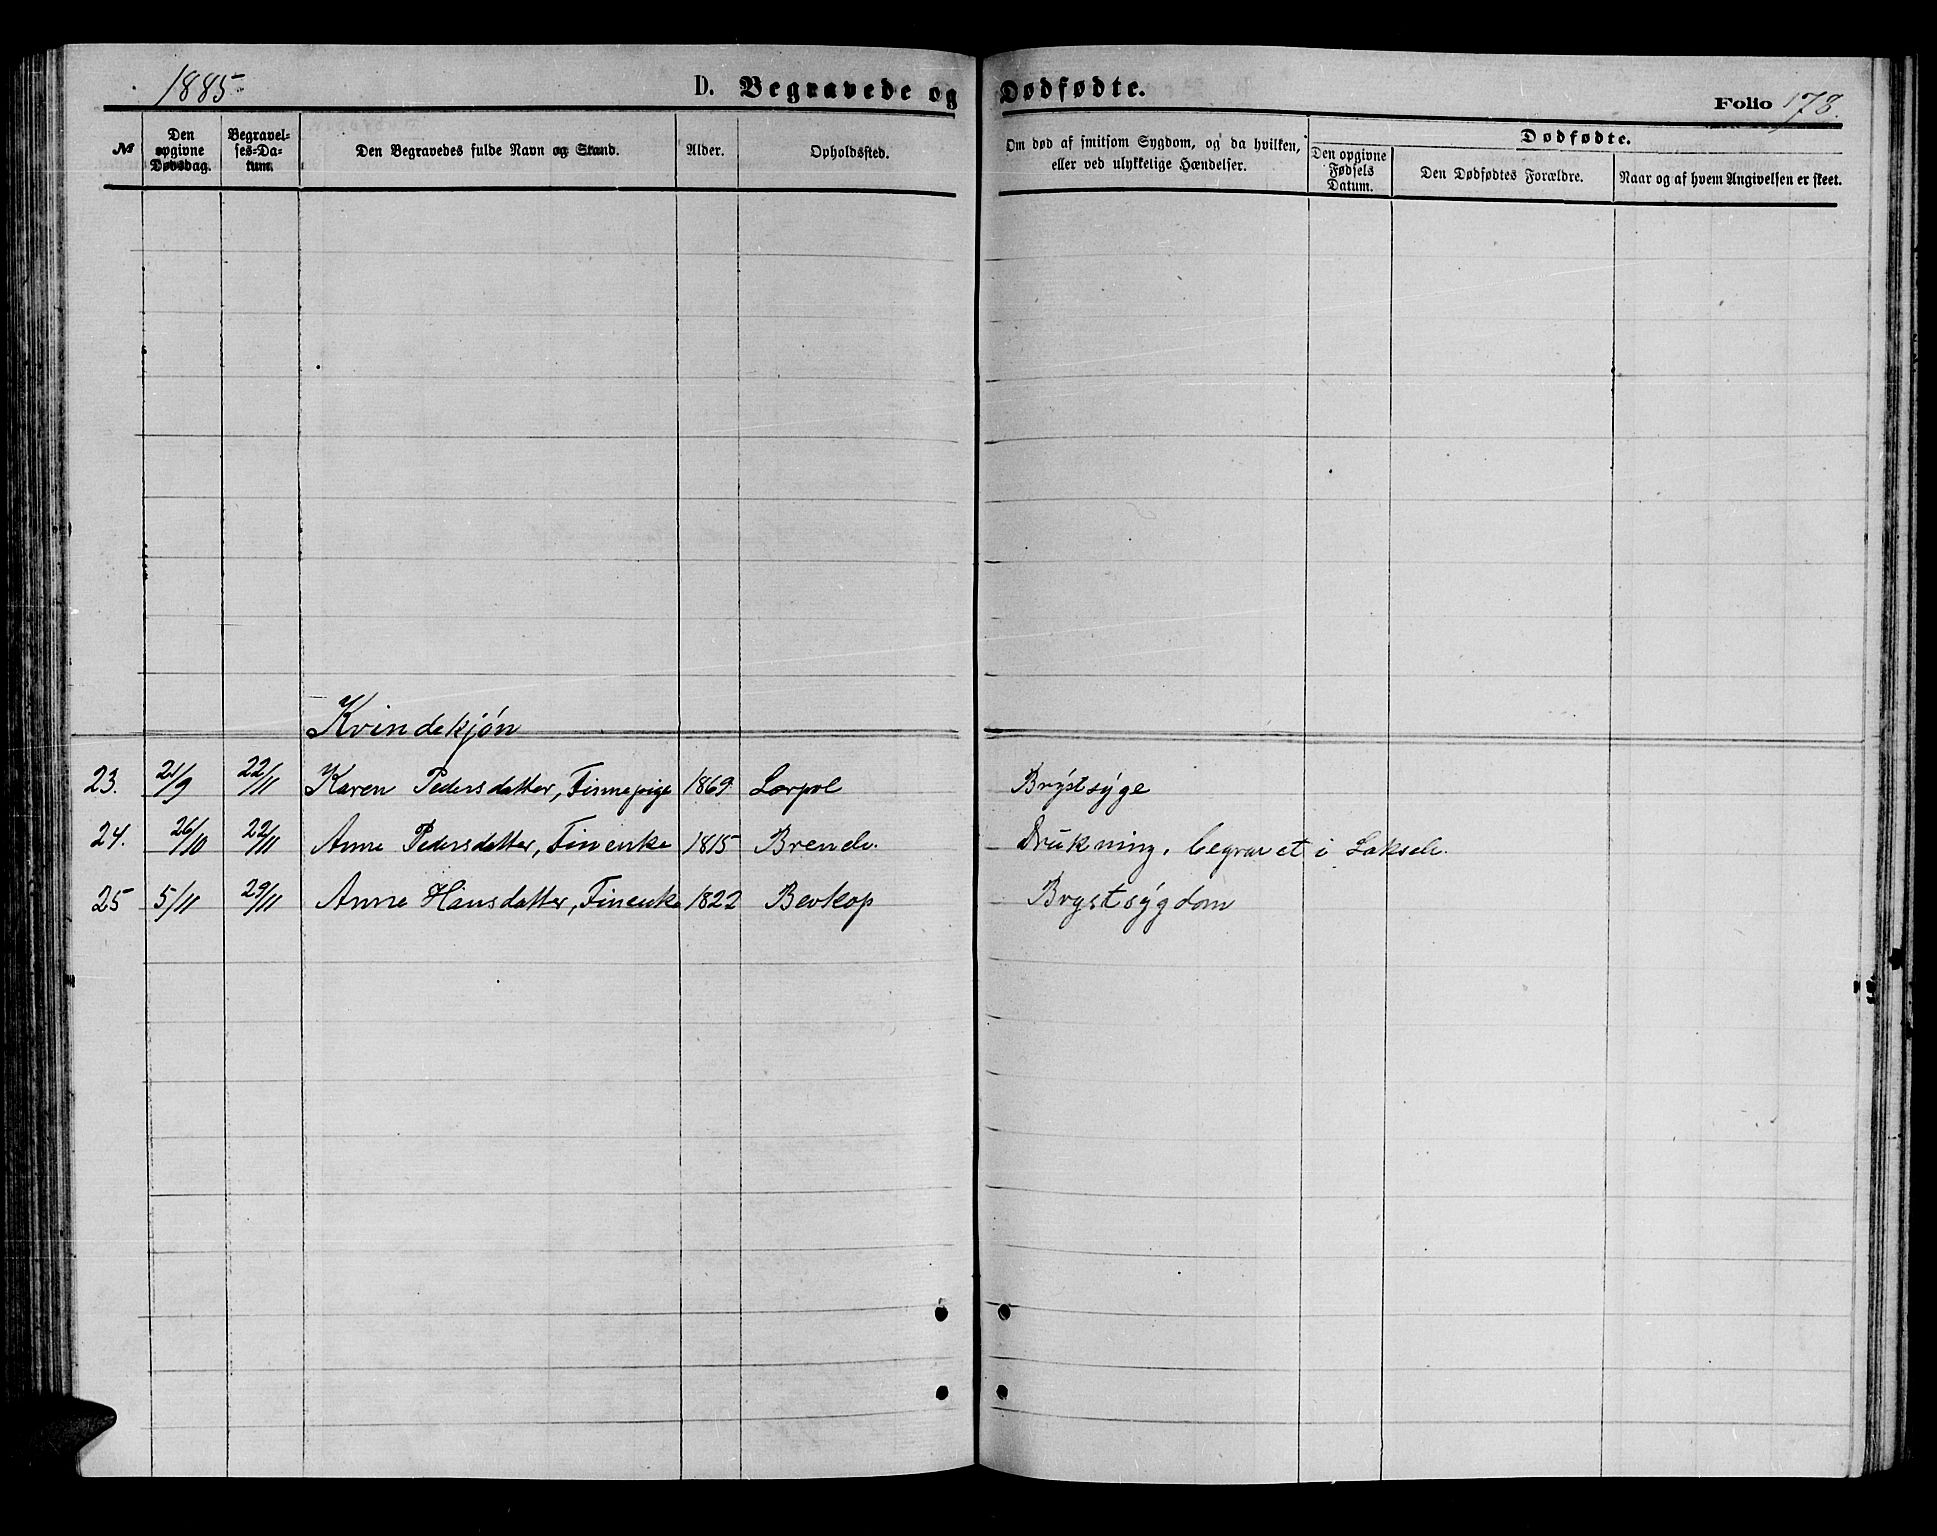 1885
D. Begravede og Dødfødte.
Folio 178.
№
Den opgivne Dødsdag.
Begravelses-Datum.
Den Begravedes fulde Navn og Stand.
Alder.
Opholdssted.
Om død af smitsom Sygdom, og da hvilken, eller ved ulykkelige Hændelser.
Dødfødte.
Den opgivne Fødsels Datum.
Den Dødfødtes Forældre.
Naar og af hvem Angivelsen er skeet.
Kvindekjøn
23. 21/9 22/11 Karen Pedersdatter, Finnepige 1869 Brystsyge
24. 26/10 22/11 Anne Pedersdatter, Finenke 1815 Brende. Drukning, begravet i Lakselv.
25 5/11 29/11 Anne Hansdatter, Finenke 1822 Bevkop Brystsygdom